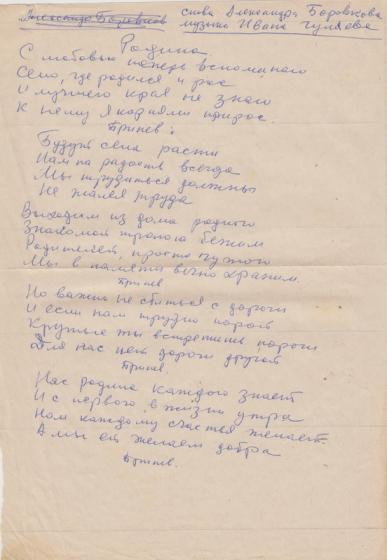 Александр Боровков слова Александра Боровкова
музыка Ивана Чуляева
Родина
С любовью теперь вспоминаю
Село, где родился и рос
И лучшего края не знаю
К нему я корнями прирос.
Припев:
Будут села расти
Нам на радость всегда
Мы трудиться должны
Не жалея труда
Выходим из дома родного
Знакомой тропою бежим
Родителей, просто чужого
Мы в памяти вечно храним.
Припев
Но важно не сбиться с дороги
И если нам трудно порой
Крутые ты встретишь пороги
Для нас нет дороги другой
Припев.
Нас родина каждого знает
И с первого в жизни утра
Нам каждому счастья желает.
А мы ей желаем добра
Припев.